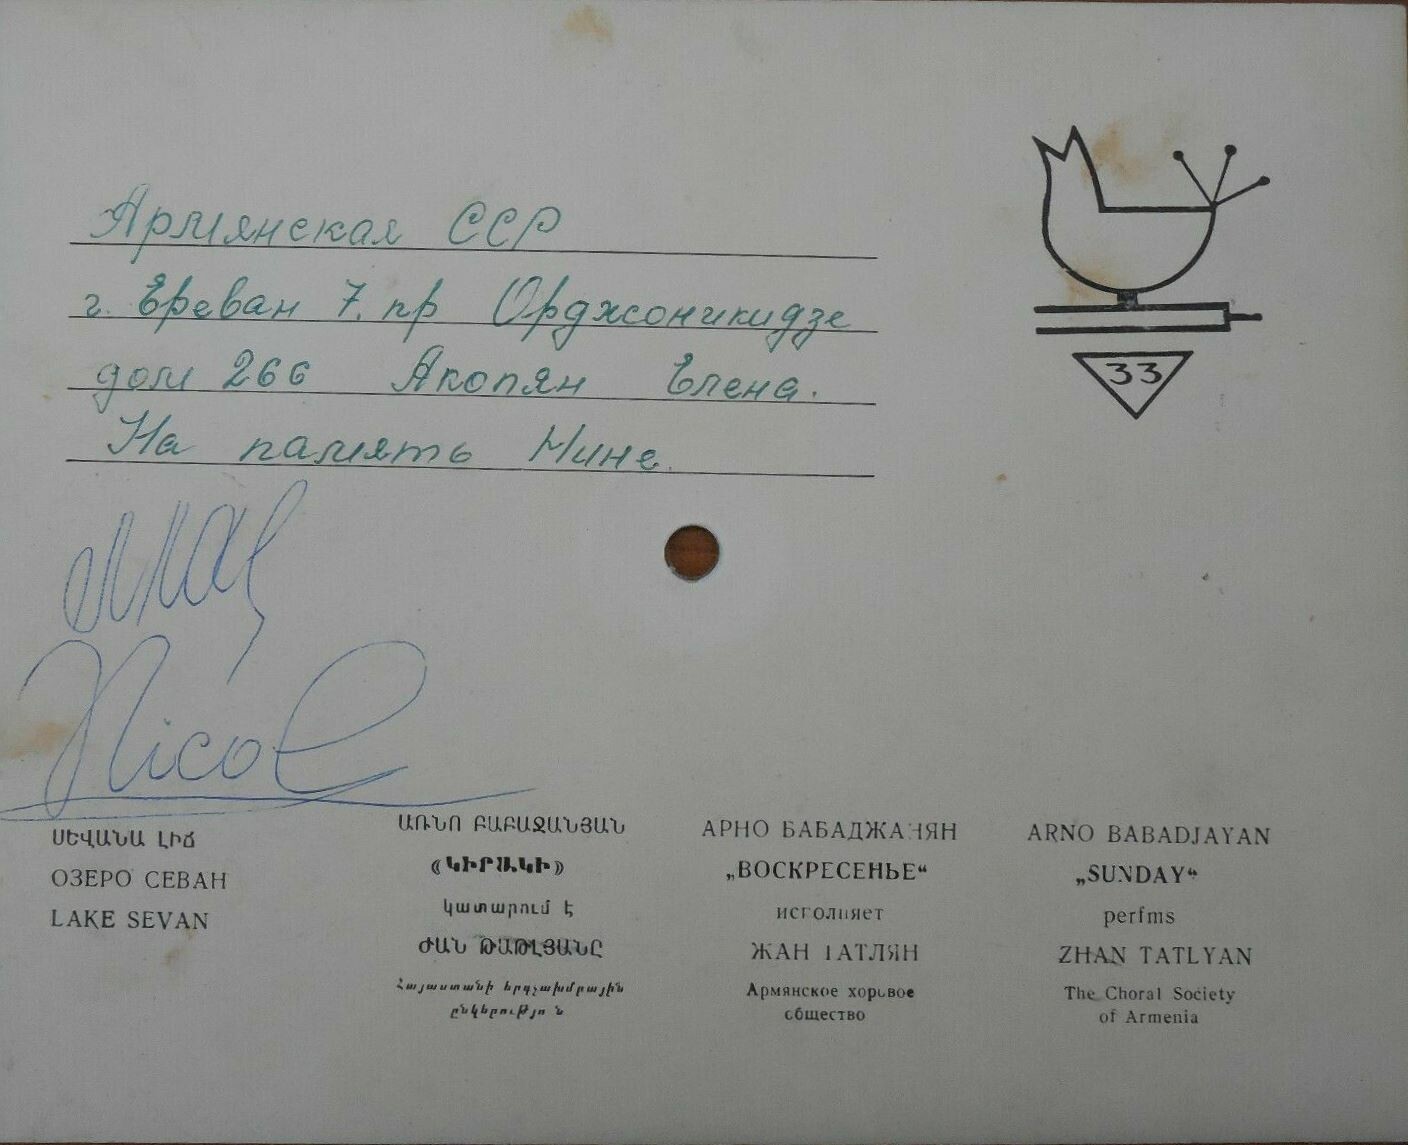 Армянская ССР
г. Ереван 7. пр Орджоникидзе
дом 266 Акопян Елена.
На память Нине
33
Nicol
ՍԵՎԱՆԱ ԼԻՃ
ОЗЕРО СЕВАН
LAKE SEVAN
ԱՌՆՈ ԲԱԲԱՋԱՆՅԱՆ
«ԿԻՐԱԿԻ»
կատարում է
ԺԱՆ ԹԱԹԼՅԱՆԸ
Հայաստանի երգչախմբային
ընկերությո ն
АРНО БАБАДЖАНЯН
„ВОСКРЕСЕНЬЕ“
исполняет
ЖАН ТАТЛЯН
Армянское хоровое
общество
ARNO BABADJAYAN
„SUNDAY“
perfms
ZHAN TATLYAN
The Choral Society
of Armenia